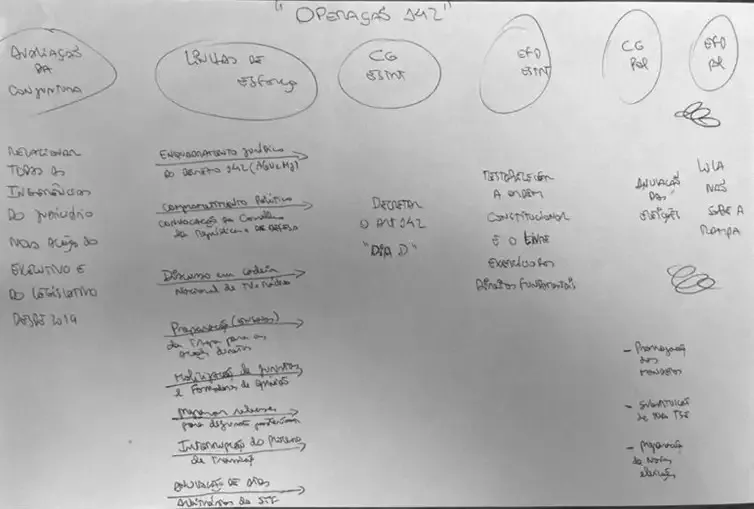 "OPERAÇÃO 142"
AVALIAÇÃO
DA
CONJUNTURA
LINHAS DE
ESFORÇO
CG
ESINT
EFD
ESINT
CG
POL
EFD
POL
RELACIONAR
TODAS AS
INGERÊNCIAS
DO JUDICIÁRIO
NAS AÇÕES DO
EXECUTIVO E
DO LEGISLATIVO
DESDE 2019
ENQUADRAMENTO JURÍDICO
DO DECRETO 142 (AGU e MJ)
Comprometimento Político
convocação do Conselho
da República e DA DEFESA
Discurso em cadeia
Nacional de TV e Rádio
Preparação
da tropa para as
ações diretas
Mobilização de juristas
e Formadores de opinião
Interrupção do Processo
de Transição
ANULAÇÃO DE ATOS
Arbitrários do STF
DECRETAR
O ART 142
"DIA D"
RESTABELECER
A ORDEM
CONSTITUCIONAL
E O LIVRE
EXERCÍCIO DOS
DIREITOS FUNDAMENTAIS
ANULAÇÃO
DAS
ELEIÇÕES
LULA
NÃO
SOBE A
RAMPA
- Prorrogação
dos
MANDATOS
- SUBSTITUIÇÃO
de todo TSE
- preparação
de Novas
eleições